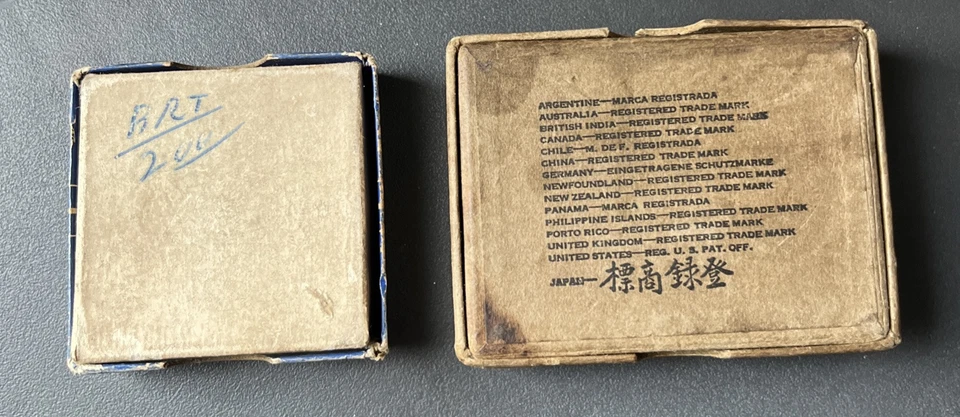 BRT
200
ARGENTINE—MARCA REGISTRADA
AUSTRALIA—REGISTERED TRADE MARK
BRITISH INDIA—REGISTERED TRADE MARK
CANADA—REGISTERED TRADE MARK
CHILE—M. DE F. REGISTRADA
CHINA—REGISTERED TRADE MARK
GERMANY—EINGETRAGENE SCHUTZMARKE
NEWFOUNDLAND—REGISTERED TRADE MARK
NEW ZEALAND—REGISTERED TRADE MARK
PANAMA—MARCA REGISTRADA
PHILIPPINE ISLANDS—REGISTERED TRADE MARK
PORTO RICO—REGISTERED TRADE MARK
UNITED KINGDOM—REGISTERED TRADE MARK
UNITED STATES—REG. U. S. PAT. OFF.
JAPAN—標商録登